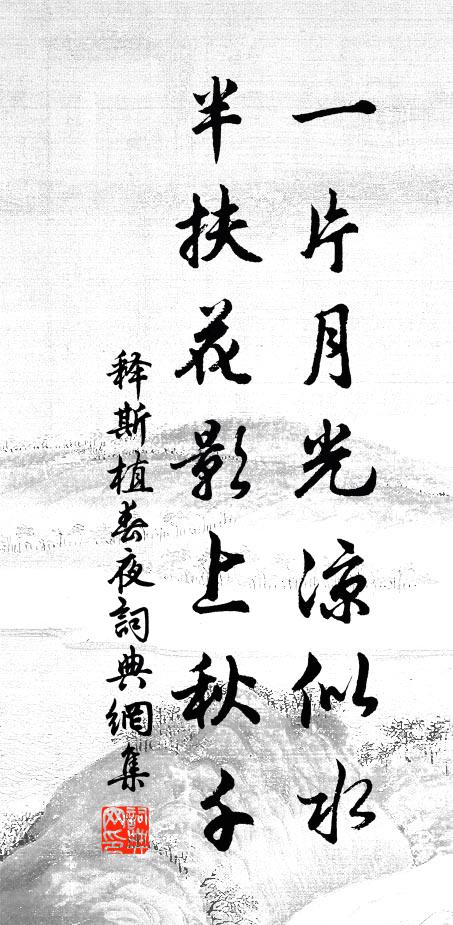 一片月光涼似水
半扶花影上秋千
释斯植春夜詞典網集